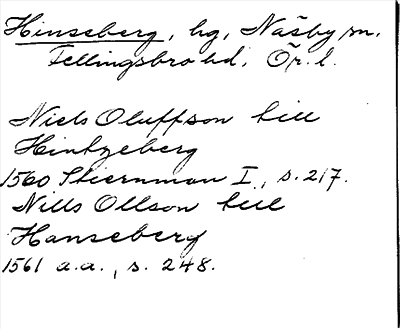 Hinseberg, hg, Näsby sn.
Fellingsbro hd, Ör. l.
Niels Oluffson till
Hintzeberg
1560 Stiernman I, s. 217.
Nills Ollson till
Hanseberg
1561 a.a., s. 248.